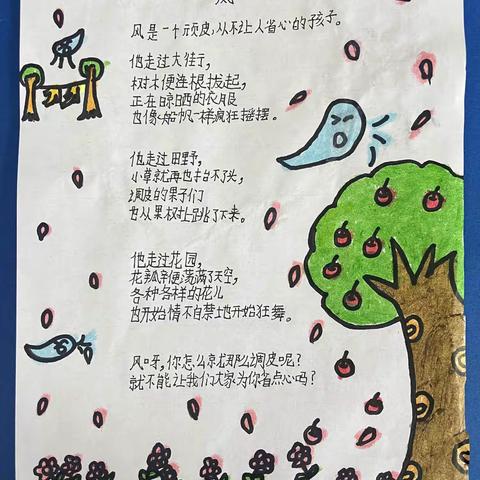 风是一个顽皮,从不让人省心的孩子。
他走过大街,
树木便连根拔起,
正在晾晒的衣服
也像船帆一样疯狂摇摆。
他走过田野,
小草就再也抬不了头,
调皮的果子们
也从果树上跳了下来。
他走过花园,
花瓣便荡满了天空,
各种各样的花儿
也开始情不自禁地开始狂舞。
风呀,你怎么就那么调皮呢?
就不能让我们大家为你省点心吗?